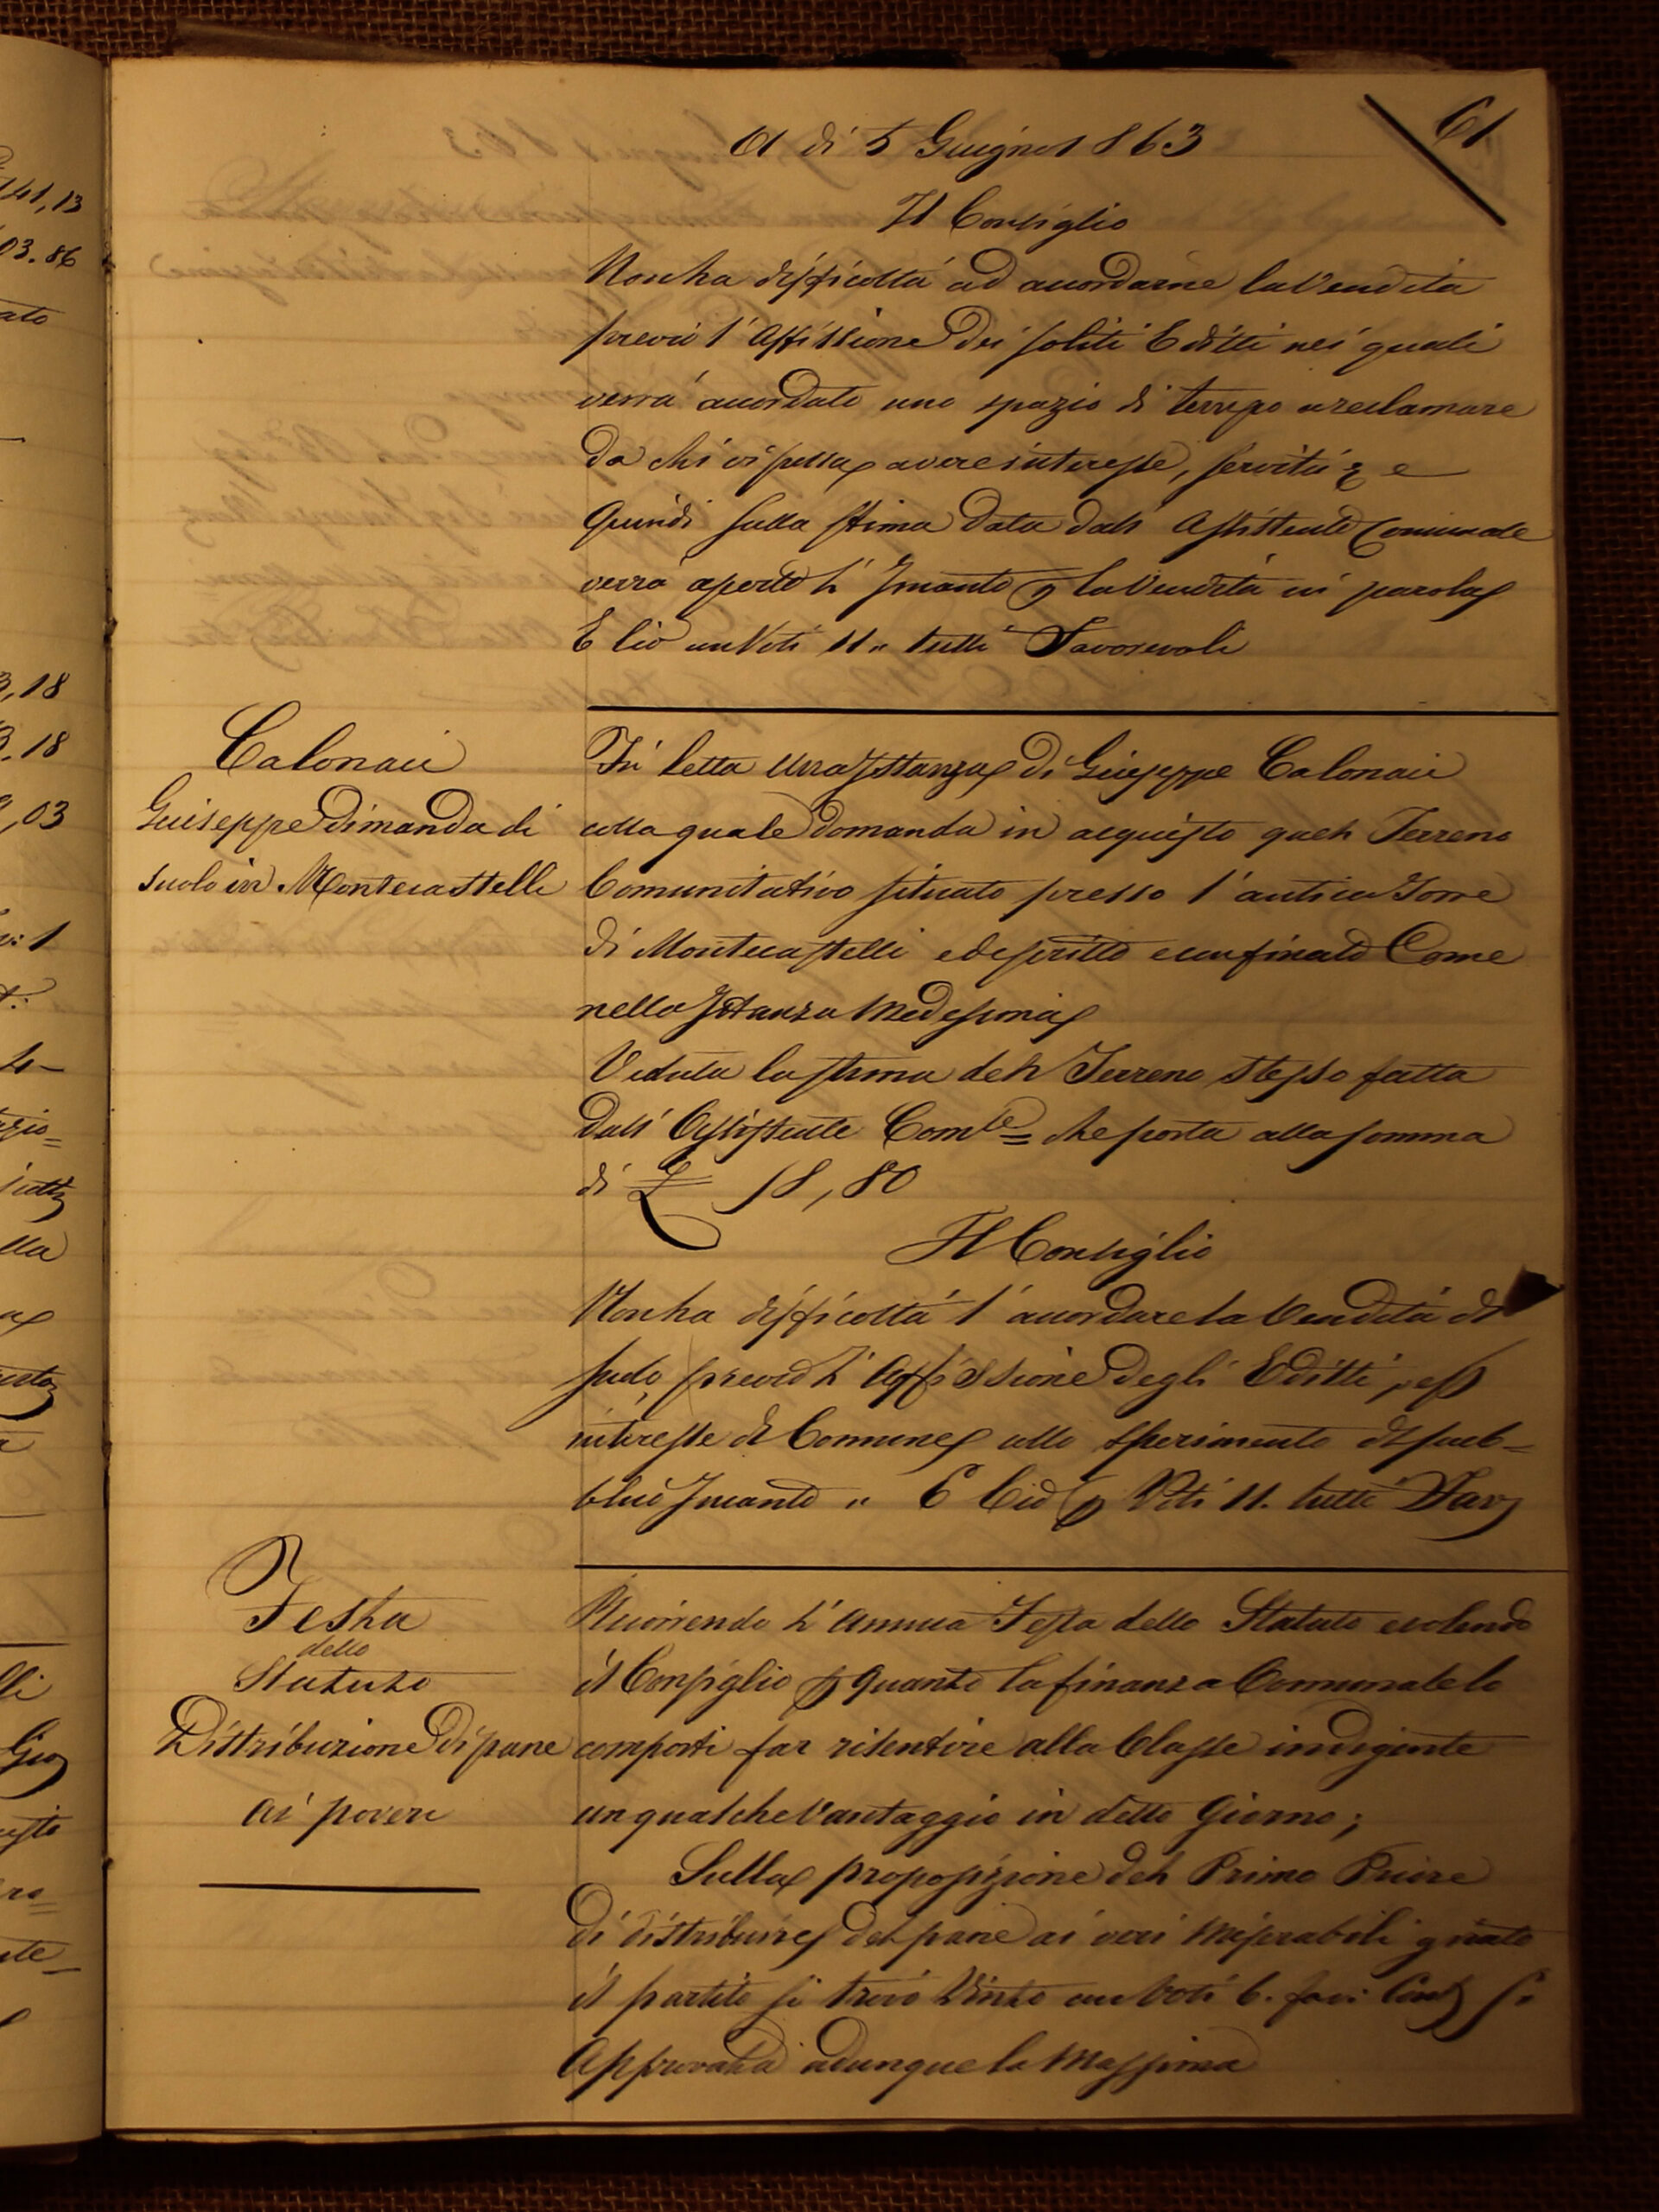 61
A dì 5 Giugno 1863
Il Consiglio
Non ha difficoltà ad accordarne la Vendita
previo l'Affissione dei soliti Editti nei quali
verrà accordato uno spazio di tempo a reclamare
da chi vi possa avere interesse, servitù e
Quindi sulla stima data dall' Assistente Comunale
verrà aperto l'Incanto p la Vendita in parola
E ciò con Voti 11,, tutti Favorevoli
Calonaci
Giuseppe Dimanda di
suolo in Montecastelli
Fù letta una Istanza di Giuseppe Calonaci
colla quale domanda in acquisto quel Terreno
Comunitativo situato presso l'antica Torre
di Montecastelli e descritto e confinato Come
nella Istanza Medesima
Veduta la stima del Terreno stesso fatta
dall' Assistente Comle= che porta alla somma
di £ 18,80
Il Consiglio
Non ha difficoltà l'accordare la Vendita di
suolo, previo l'Affissione degli Editti,
interesse di Comune allo sperimento di pub=
blico Incanto ,, E Ciò p Voti 11. tutti Fav
Festa
dello
Statuto
Distribuzione di pane
ai poveri
Ricorrendo l'annua Festa dello Statuto e volendo
il Consiglio p quanto la finanza Comunale lo
comporti far risentire alla Classe indigente
un qualche Vantaggio in detto Giorno;
Sulla proposizione del Primo Priore
di distribuire del pane ai veri Miserabili girato
il partito si trovò Vinto con Voti 6. fav:
Approvata adunque la Massima
141,13
03.86
ato
3,18
3.18
,03